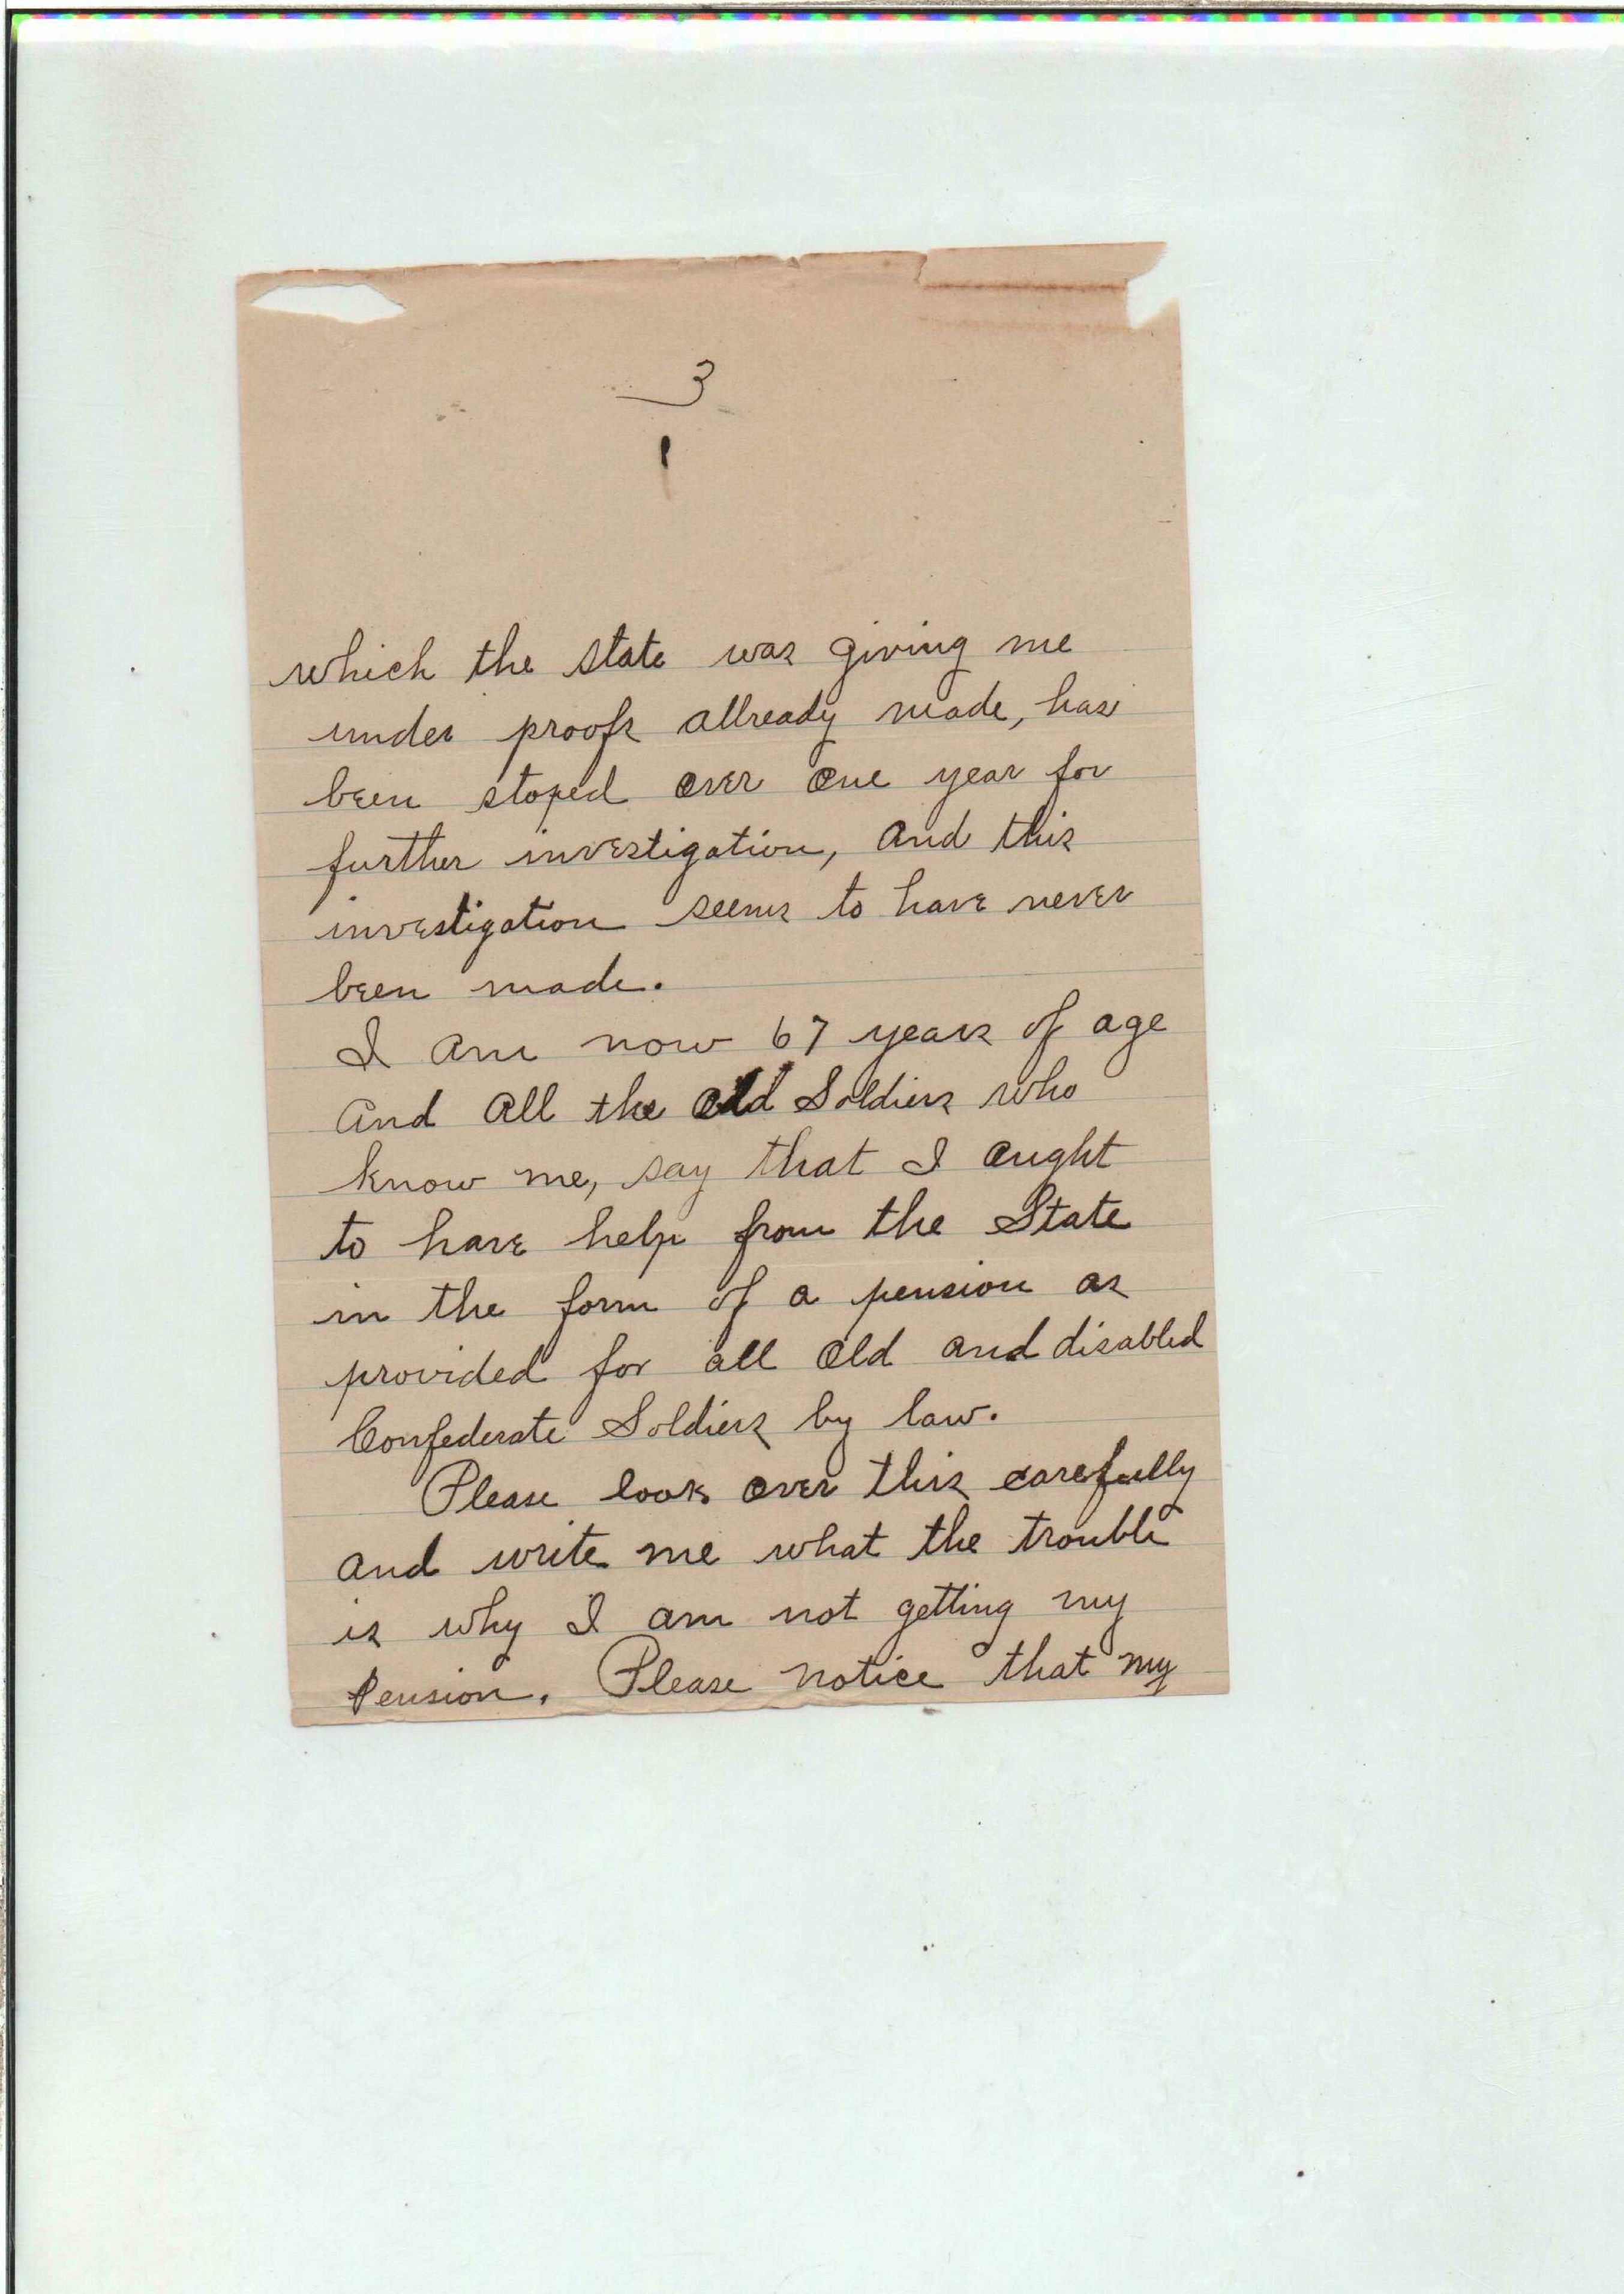 3
which the state was giving me
under proofs allready made, has
been stoped over one year for
further investigation, and this
investigation seems to have never
been made.
I am now 67 years of age
and all the old Soldiers who
know me, say that I ought
to have help from the State
in the form of a pension as
provided for all old and disabled
Confederate Soldiers by law.
Please look over this carefully
and write me what the trouble
is why I am not getting my
Pension. Please notice that my